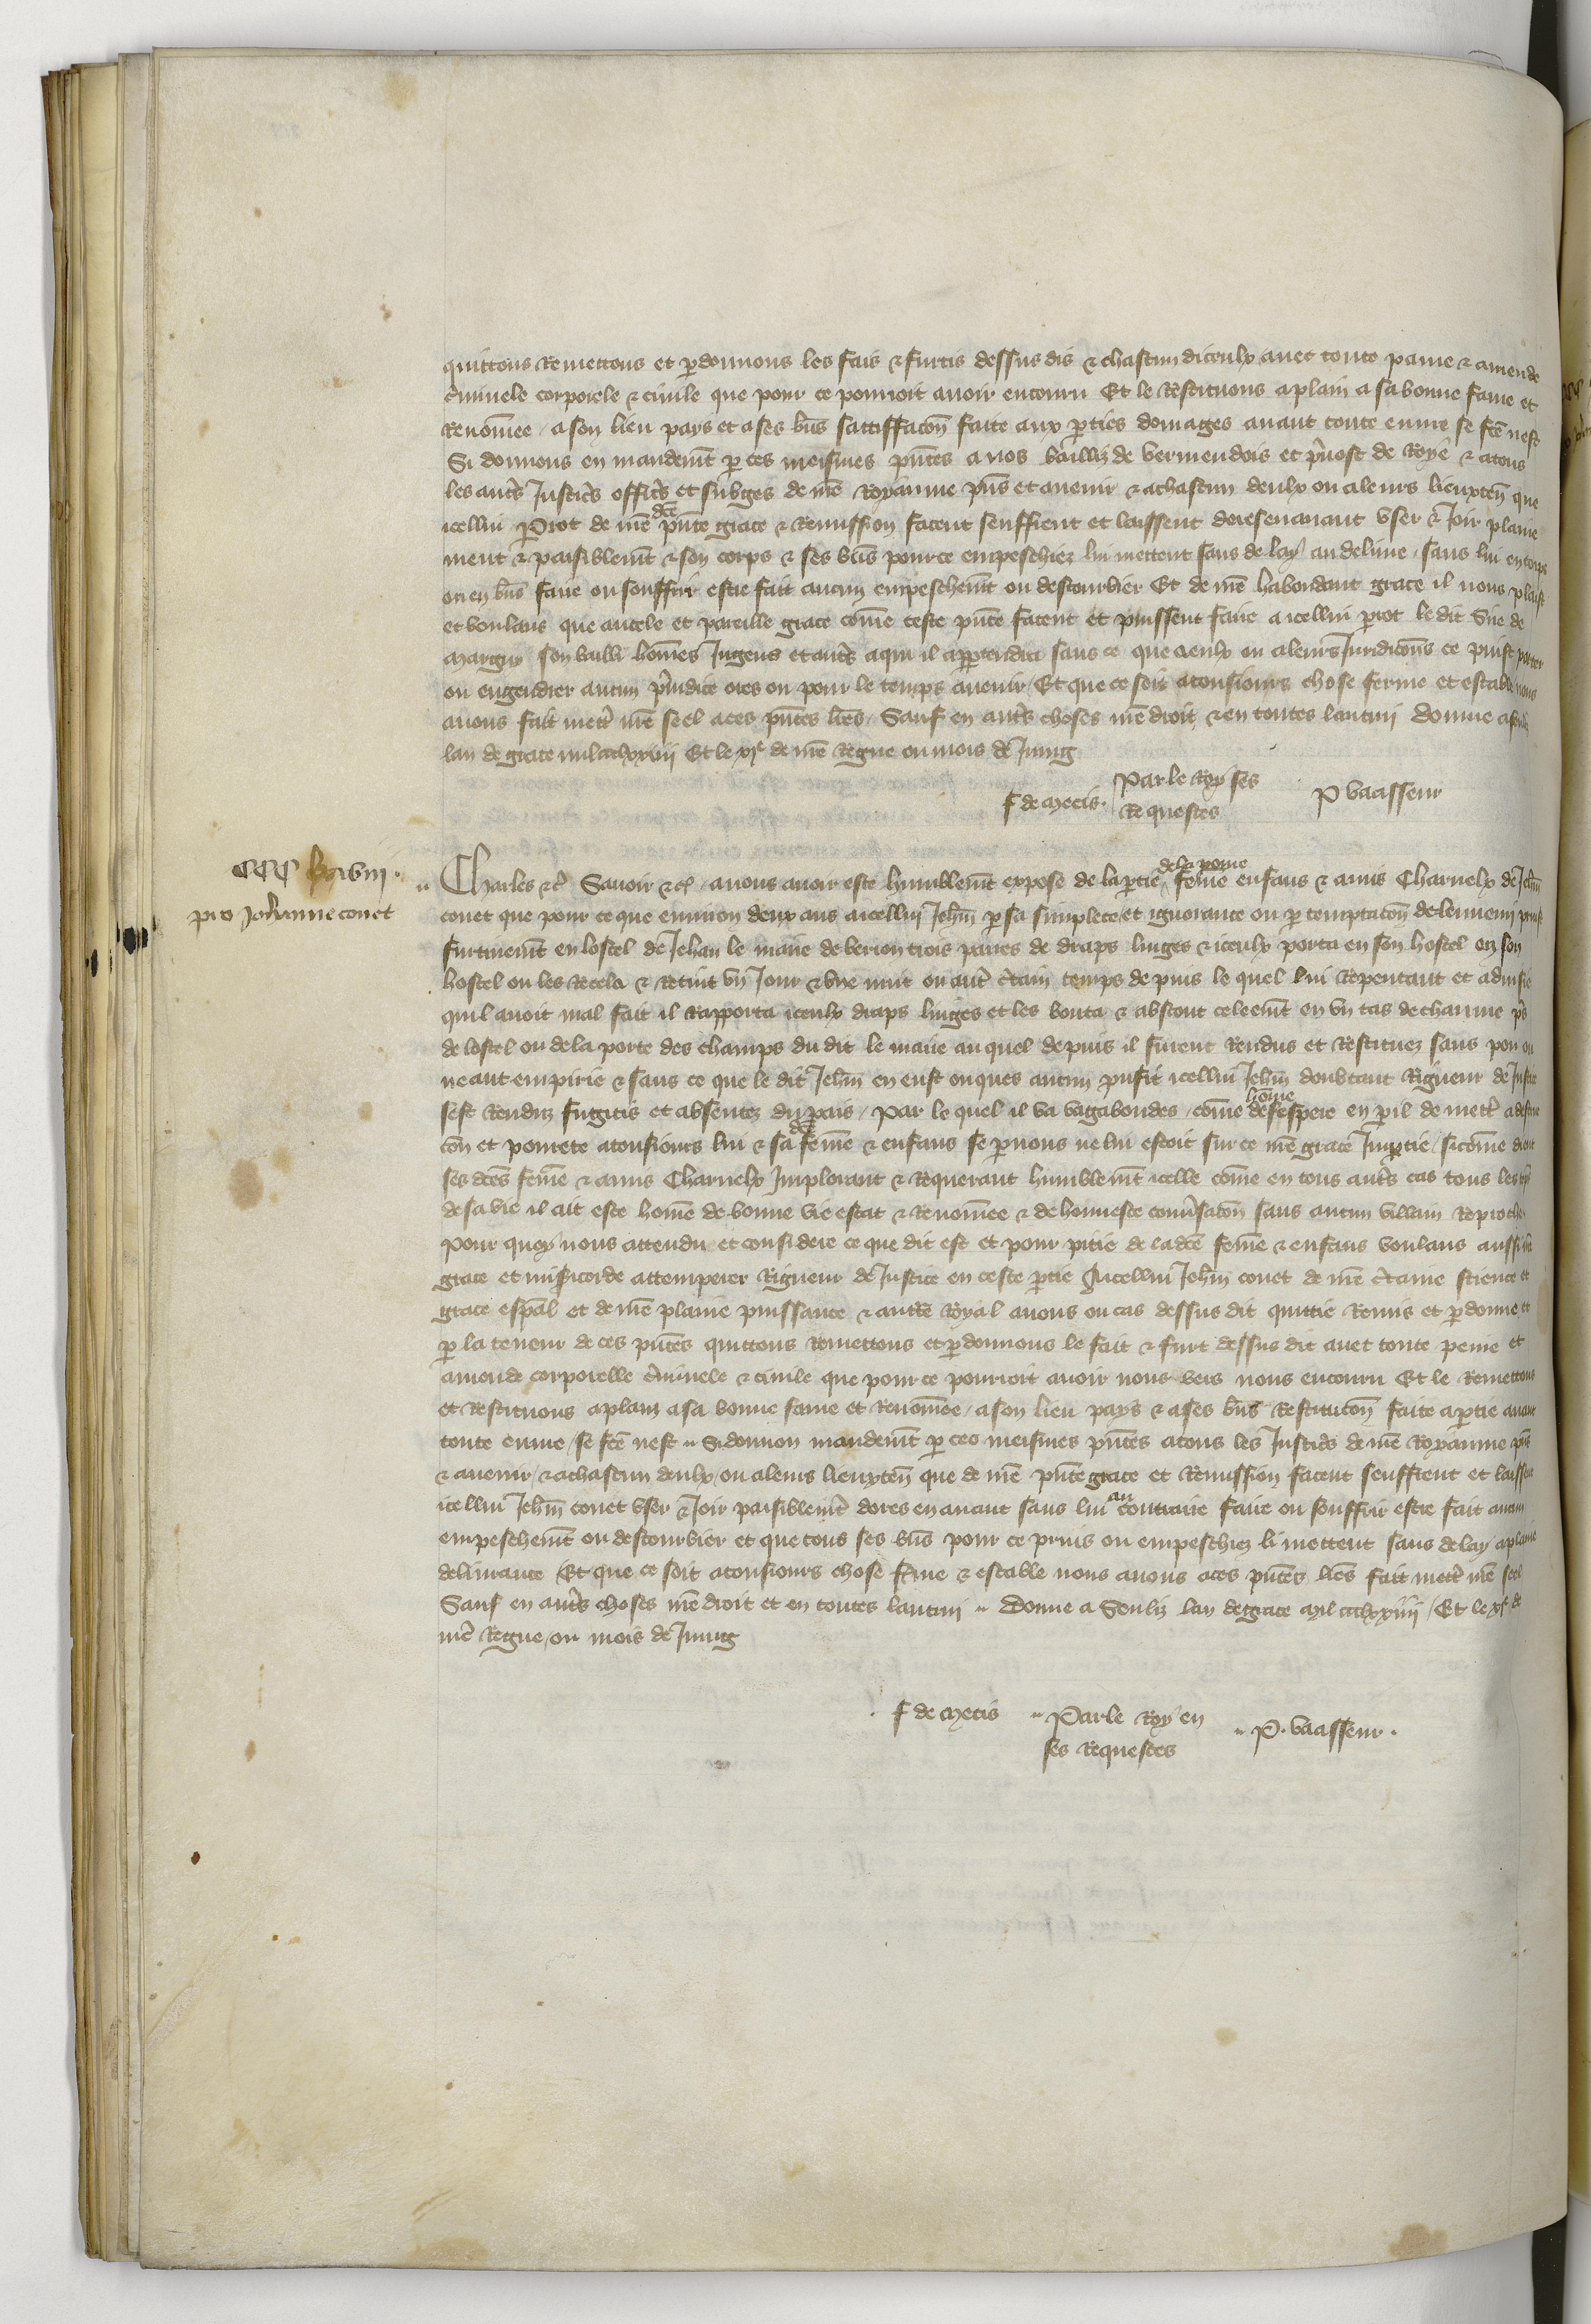 quittons remettons et pdonnons les fais & furtis dessus dis & chascun diceulx avec toute paine & amende
c̾minele corporele & civile que pour ce pourroit avoir encouru Et le restituons a plain a sa bonne fame et
renōmee / a son lieu pays et a ses bñs satiffacōn faite aux pties domages avant toute euvre se fc̄e nest
Si donnons en mandemt̄ p ces meismes pñtes a nos bailliz de vermendois et p̾vost de Roye & a tous
les aut̾s Justic̾s offic̾s et subges de nr̄e Royaume pñs et avenir & a chascun deulx ou a leurs lieuxten̄ que
icellui Pirot de nr̄e dc̄e pñte grace & remission facent seuffrent et laissent doresenavant user & Joir plaine
ment & paisiblemt̄ & son corps & ses bñs pour ce empeschiez lui mettent sans delay au delivre / sans lui en corps
ou en bñs faire ou souffrir estre fait aucun empeschemt̄ ou destourbier Et de nr̄e habondant grace il nous plaist
et voulans que autele et pareille grace cōme ceste pñte facent et puissent faire a icellui pirot le dit Sire de
son bailli hōmes Jugens et aut̾s a qui il appartendra sans ce que a eulx ou a leurs Juridicōns ce puist porter
ou engendrer aucun p̾judice ores ou pour le temps avenir / Et que ce soit a tousiours chose ferme et estable nous
avons fait mett̾ nr̄e seel a ces pñtes lr̄es / Sauf en aut̾s choses nr̄e droit & en toutes lautrui donne a Senliz
lan de grace mil ccc lxxiiii Et le xie de nr̄e Regne ou mois de Juing
f de Metis. Par le Roy ses P Vaasseur
Requestes
CCC lxviii.
pro Johanne couet
Charles &c̄ Savoir &c̄ / a nous avoir este humblemt̄ expose de la ptie de la povre feme enfans & amis Charnelx de Jeh̄n
couet que pour ce que environ deux ans a icellui Jeh̄n p sa simplece et ignorance ou p temptacōn de lennemi prinst
furtivemt̄ en lostel de Jehan le maire de trois paires de draps linges & iceulx porta en son hostel en son
hostel ou les recela & retint un Jour & une nuit ou aut̾ c̾tain temps depuis le quel lui repentant et advise
quil avoit mal fait il rapporta iceulx draps linges et les bouta & abscout celeemt̄ en un tas de chanvre p̾s
de lostel ou de la porte des champs du dit le maire au quel depuis il furent rendus et restituez sans pou ou
neant empirie & sans ce que le dit Jeh̄n en eust onques aucun pufit icellui Jeh̄n doubtant rigueur de Justice
sest renduz fugitis et absentez du pais / Par le quel il va vagabondes / cōme hōme desespere en pil de mett̾ a destruc
cōn et povrete a tousiours lui & sa dc̄e feme & enfans se p nous ne lui estoit sur ce nr̄e grace Impartie / si cōme dient
ses dc̄es feme & amis Charnelx Implorant & requerant humblemt̄ icelle cōme en tous aut̾s cas tous les
de sa vie il ait este home de bonne vie estat & renōmee & de honneste conv̾sacōn sans aucun villain reproche
Pour quoy nous attendu et considere ce que dit est et pour pitie de la dc̄e feme & enfans voulans aussi
grace et mis̾icorde attemperer rigueur de Justice en ceste ptie A icellui Jeh̄n couet de nr̄e c̾taine science et
grace esp̄al et de nr̄e plaine puissance & auct̄e Royal avons ou cas dessus dit quittie remis et pdonne et
p la teneur de ces pñtes quittons remettons et pdonnons le fait & furt dessus dit avec toute peine et
amende corporelle c̾minele & civile que pour ce pourroit avoir nous vers nous encouru Et le remettons
et restituons a plain a sa bonne fame et renōmee / a son lieu pays & a ses bñs restitucōn faite a ptie avant
toute euvre / se fc̄e nest .. Si donnon mandemt̄ p ces meismes pñtes a tous les Justic̾s de nr̄e Royaume pñs
& avenir / & a chascun deulx / ou a leurs lieuxten̄ que de nr̄e pñte grace et remission facent seuffrent et laissent
icellui Jeh̄n couet user & Joir paisiblemt̄ dores en avant sans lui au contraire faire ou souffrir estre fait aucun
empeschemt̄ ou destourbier et que tous ses bñs pour ce prins ou empeschiez li mettent sans delay a plaine
delivrance Et que ce soit a tousiours chose ferme & estable nous avons a ces pñtes lr̄es fait mett̾ nr̄e seel
Sauf en aut̾s choses nr̄e droit et en toutes lautrui .. Donne a Senliz lan de grace Mil ccc lxxiiii / Et le xie de
nr̄e Regne / ou mois de Juing
f de Metis .. Par le Roy en .. P. Vaasseur.
ses Requestes